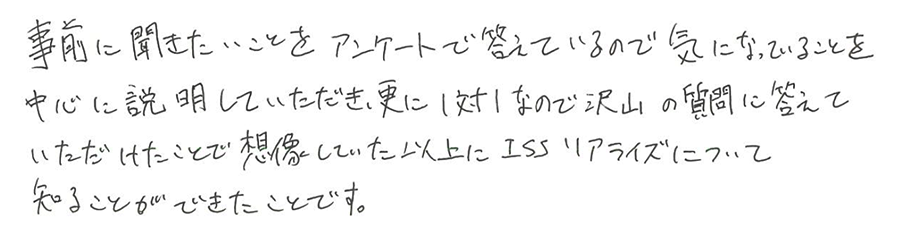 事前に聞きたいことをアンケートで答えているので気になっていることを
中心に説明していただき、更に1対1なので沢山の質問に答えて
いただけたことで想像していた以上にISSリアライズについて
知ることができたことです。